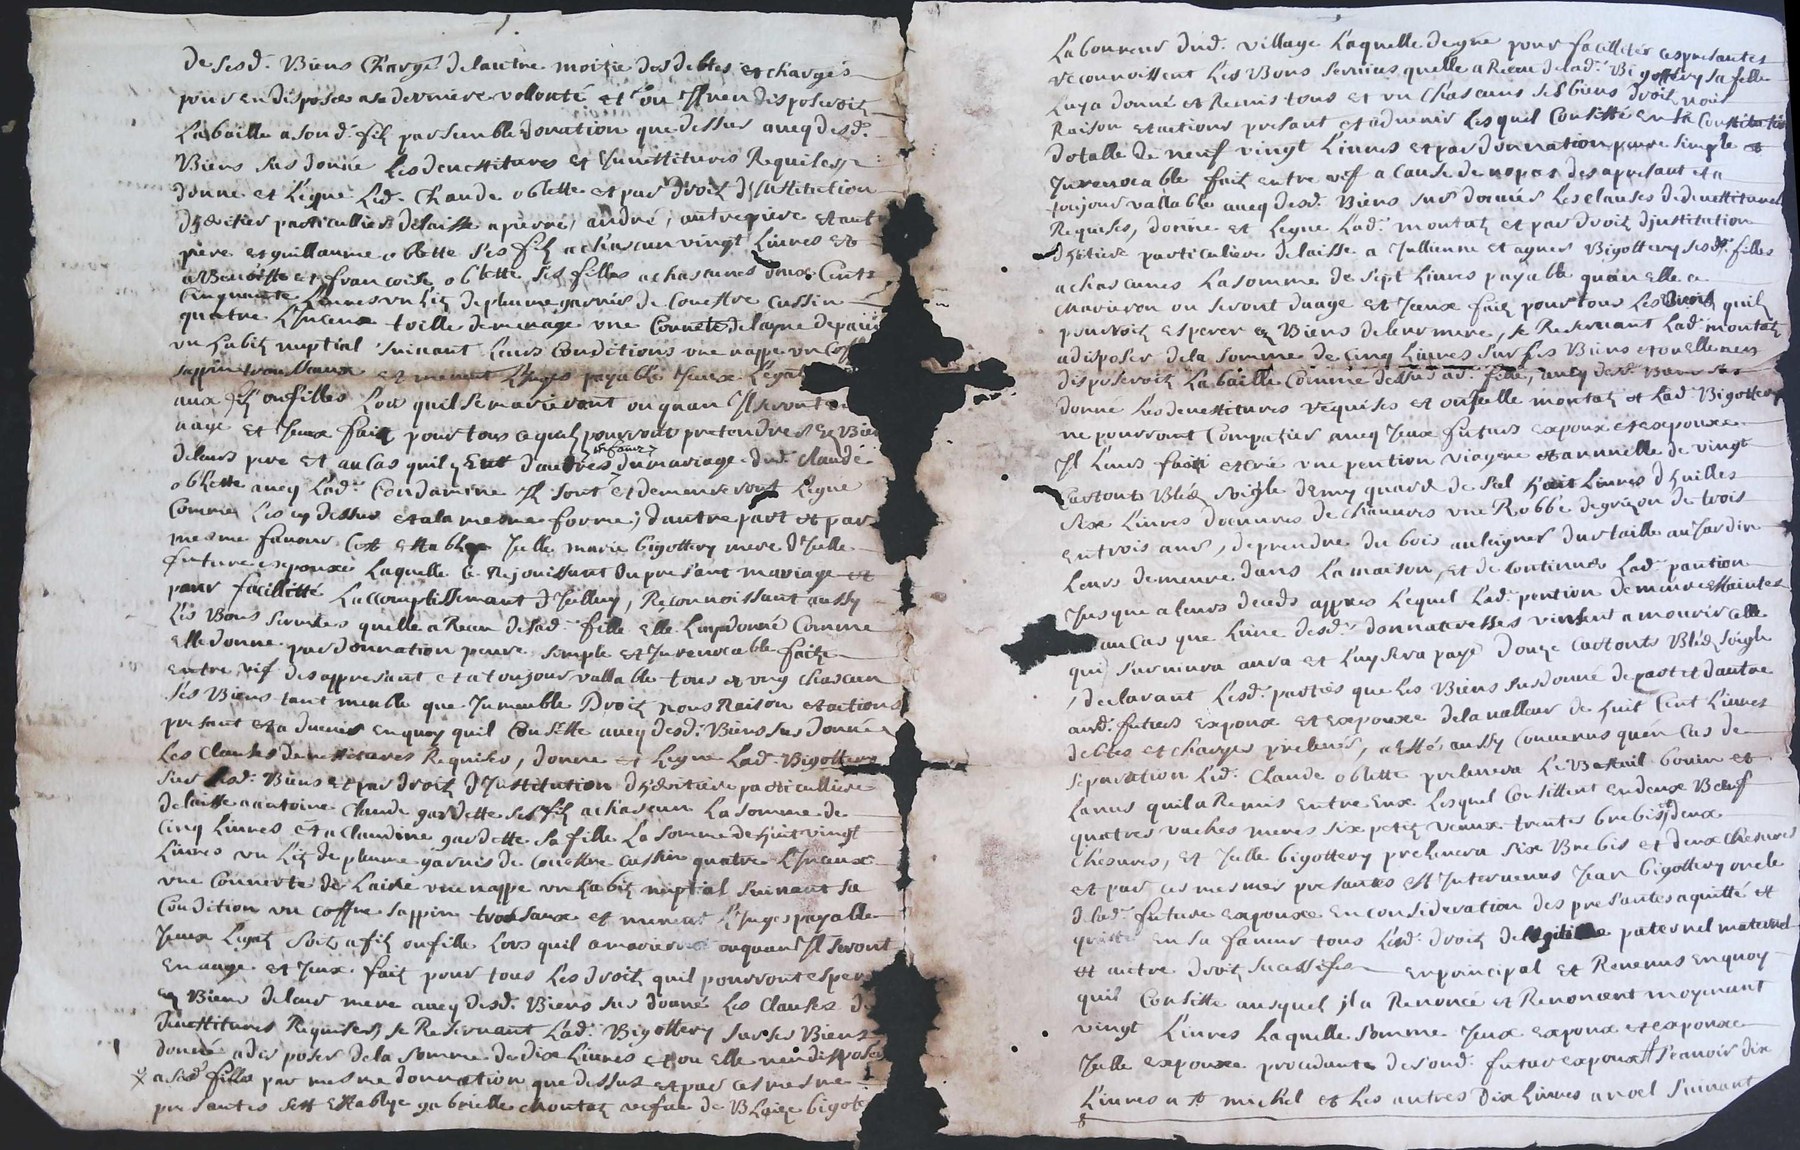 de sesd. Biens Chargé delautre moitzie des debtes et charges
pour en disposer a sa derniere vollonté et ou Jl nen disposeroit
La baille a sond. filz par semble donation que dessus aueq desd.
Biens sus donné Les deuestitures et Jnuestitures Requises
donne et Legue Led. Claude oblette et par droit djnstitution
dheritier particulliers delaisse a pierre, andré, autre piere et aut
piere et guillaume oblette ses filz a chascun vingt Liures et
a Benoiste et francoise oblette ses filles a chascunes deux Cents
Cinquante Liures vn Lit de plume garnis de Couestre Cussin
quatre Linceux toille de menage vne Couuerte de layne de païs
vn habit nuptial suiuant Leurs Conditions vne nappe vn Coff
sappin trousseaux et menut Linges payable Jceux Legatz
aux filz ou filles Lors quil se marieront ou quan Jl seront en
aage et Jceux faitz pour tous ce quil pourroit pretendre sez Bien
de leurs pere et au Cas quil y Eut dautres enfans du mariage dud. Claude
oblette aueq Lad. Condamine Jl sont et demeureront Legué
Comme Les cy dessus et a la mesme forme; dautre part et par
mesme faueur Cest Establye Jelle marie bigottery mere d'Jelle
future espouxe Laquelle se Rejouissant du present mariage et
pour facillitté Laccomplissimant d'Jcelluy, Reconnoissant aussy
Les Bons seruices quelle a Receu de sad. fille elle Luy a donné Comme
Elle donne par donnation peure simple et Jrreuocable faite
entre vif des appresant et a toujour vallable tous et vng chascun
ses Biens tant meuble que Jmmeuble Droit nons Raison et actions
presant et a duenir en quoy quil Consiste aueq desd. Biens sus donné
Les Clauses deuestitures Requises, donne et Legue Lad. Bigottery
sur sesd. Biens et par droit d'Justitution dheritiere particulliere
delaisse a antoine Claude gardette ses filz a chascun La somme de
Cinq Liures et a Claudine gardette sa fille La somme de huit vingt
Liures vn Lit de plume garnis de Couestre Cussin quatre Linceux
vne Couuerte de Laine vne nappe vn habit nuptial suiuant sa
Condition vn coffre sappin trousseaux et menut Linges payable
Jceux Legatz soit a filz ou fille Lors quil a marieront ou quan Jl seront
en aage et Jceux fait pour tous Les droit quil pourront esper
ez Biens de leur mere aueq desd. Biens sus donné Les Clauses de
Deuestitures Requises, se Reseruant Lad. Bigottery sur ses Biens
donné a disposer de la somme de dix Liures et ou elle nen dispose
a sad. fille par mesme donnation que dessus et par ces mesme
presantes sest Establye gabrielle montaz vefue de Blaize bigote
Laboureur dud. village Laquelle de gré pour facilleter ces presantes
reconnoissent Les Bons seruices quelle a Receu de lad. Bigottery sa fille
Luy a donné et Remis tous et vn chascuns ses biens droit nois
Raison et actions presant et aduenir Lesquel Consiste en sa Constitution
dotalle de neuf vingt Liures et par donnation peure simple et
Jrreuocable fait entre vif a cause de nopces des apresant et a
toujour vallable aueq desd. Biens sus donnés Les clauses de deuestitures
Requises, donne et Legue Lad. montaz et par droit djnstitution
dheritiere particuliere delaisse a Jullienne et agnes Bigottery sesd. filles
a chascunes La somme de sept Liures payable quan elle ce
marieron ou seront daage et Jceux fait pour tous Les droit quil
pourroit esperer ez Biens de leur mere, se Reseruant Lad. montaz
a disposer de la somme de Cinq Liures sur ses Biens et ou elle nen
disposeroit La baille Comme dessus a d. fille, aueq desd. Biens sus
donné Les deuestitures requises et ou Jcelle montaz et Lad. Bigottery
ne pourront Compatier aueq Jceux futurs expoux et expouxe
Jl Leurs font et crie vne pention viagere et annuelle de vingt
Cartonts Bled seigle demy quard de sel huit Liures dhuilles
six Liures doeuures de chanures vne Robbe de grizon de trois
en trois ans, de prendre du bois au leigner du Jartaille au Jardin
Leurs demeure dans La maison, et de continuer Lad. pantion
Jusque a leurs deceds appres Lequel Lad. pention demeure Estainte
au Cas que Lune desd. donnateresses vinsent a mourir celle
qui suruiura aura et Luy sera payé douze cartonts Bled seigle
, declarant Lesd. parties que Les Biens sus donné de part et dautre
aud. futurs expoux et expouxe de la valleur de huit Cent Liures
debtes et charges preleues, a esté aussy Conuenus quen Cas de
separation Led. Claude oblette preleuera Le Bestail bouin et
Lanus quil a Remis entre Eux Lesquel Consistent en deux Boeuf
quatres vaches meres six petit veaux trentes brebis et deux
Chesures, et Jcelle bigottery preleuera six Brebis et deux Chesures
et par ces mesmes presantes est Jnteruenus Jean bigottery oncle
de lad. future expouxe en consideration des presantes a quitté et
quitte En sa faueur tous Lesd. droit de legitime paternel maternel
et autre droit successifs en principal et Reuenus en quoy
quil Consiste ausquel jl a Renoncé et Renoncent moyenant
vingt Liures Laquelle somme Jceux expoux et expouxe
Jcelle expouxe procedante de sond. futur expoux scauoir dix
Liures a St michel et Les autres dix Liures a noel suiuant